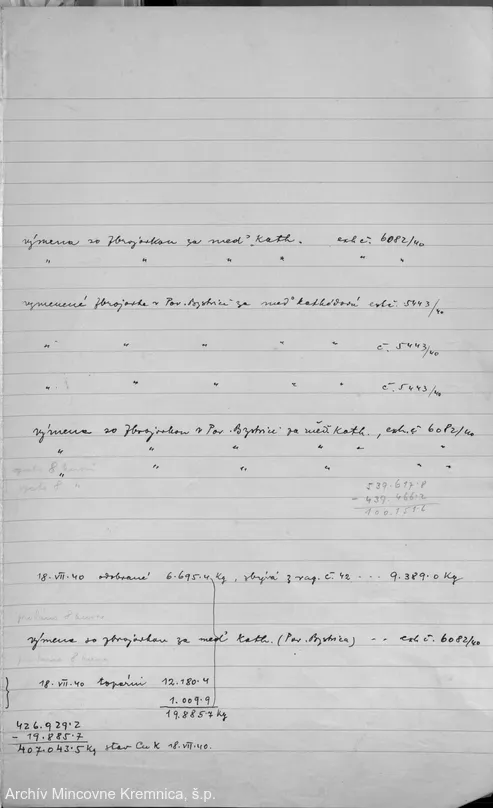 výmena so Zbrojovkou za meď Kath. exh. č. 6082/40
" " " " " "
vymenené Zbrojovke v Pov. Bystrici za meď kathódovú exh. č. 5443/40
" " " " " č. 5443/40
" " " " " č. 5443/40
výmena so Zbrojovkou v Pov. Bystrici za meď Kath., exh. č. 6082/40
" " " " " "
" " " " " "
539.617.8
- 439.466.2
100.151.6
18.VII.40 odobrané 6.695.4 Kg, zbývá z vag. č. 42 --- 9.389.0 Kg
výmena so zbrojovkou za meď Kath. (Pov. Bystrica) -- exh. č. 6082/40
18.VII.40 12.180.4
1.009.9
19.885.7 Kg
426.929.2
- 19.885.7
407.043.5 Kg stav Cu K 18.VII.40.
Archív Mincovne Kremnica, š.p.